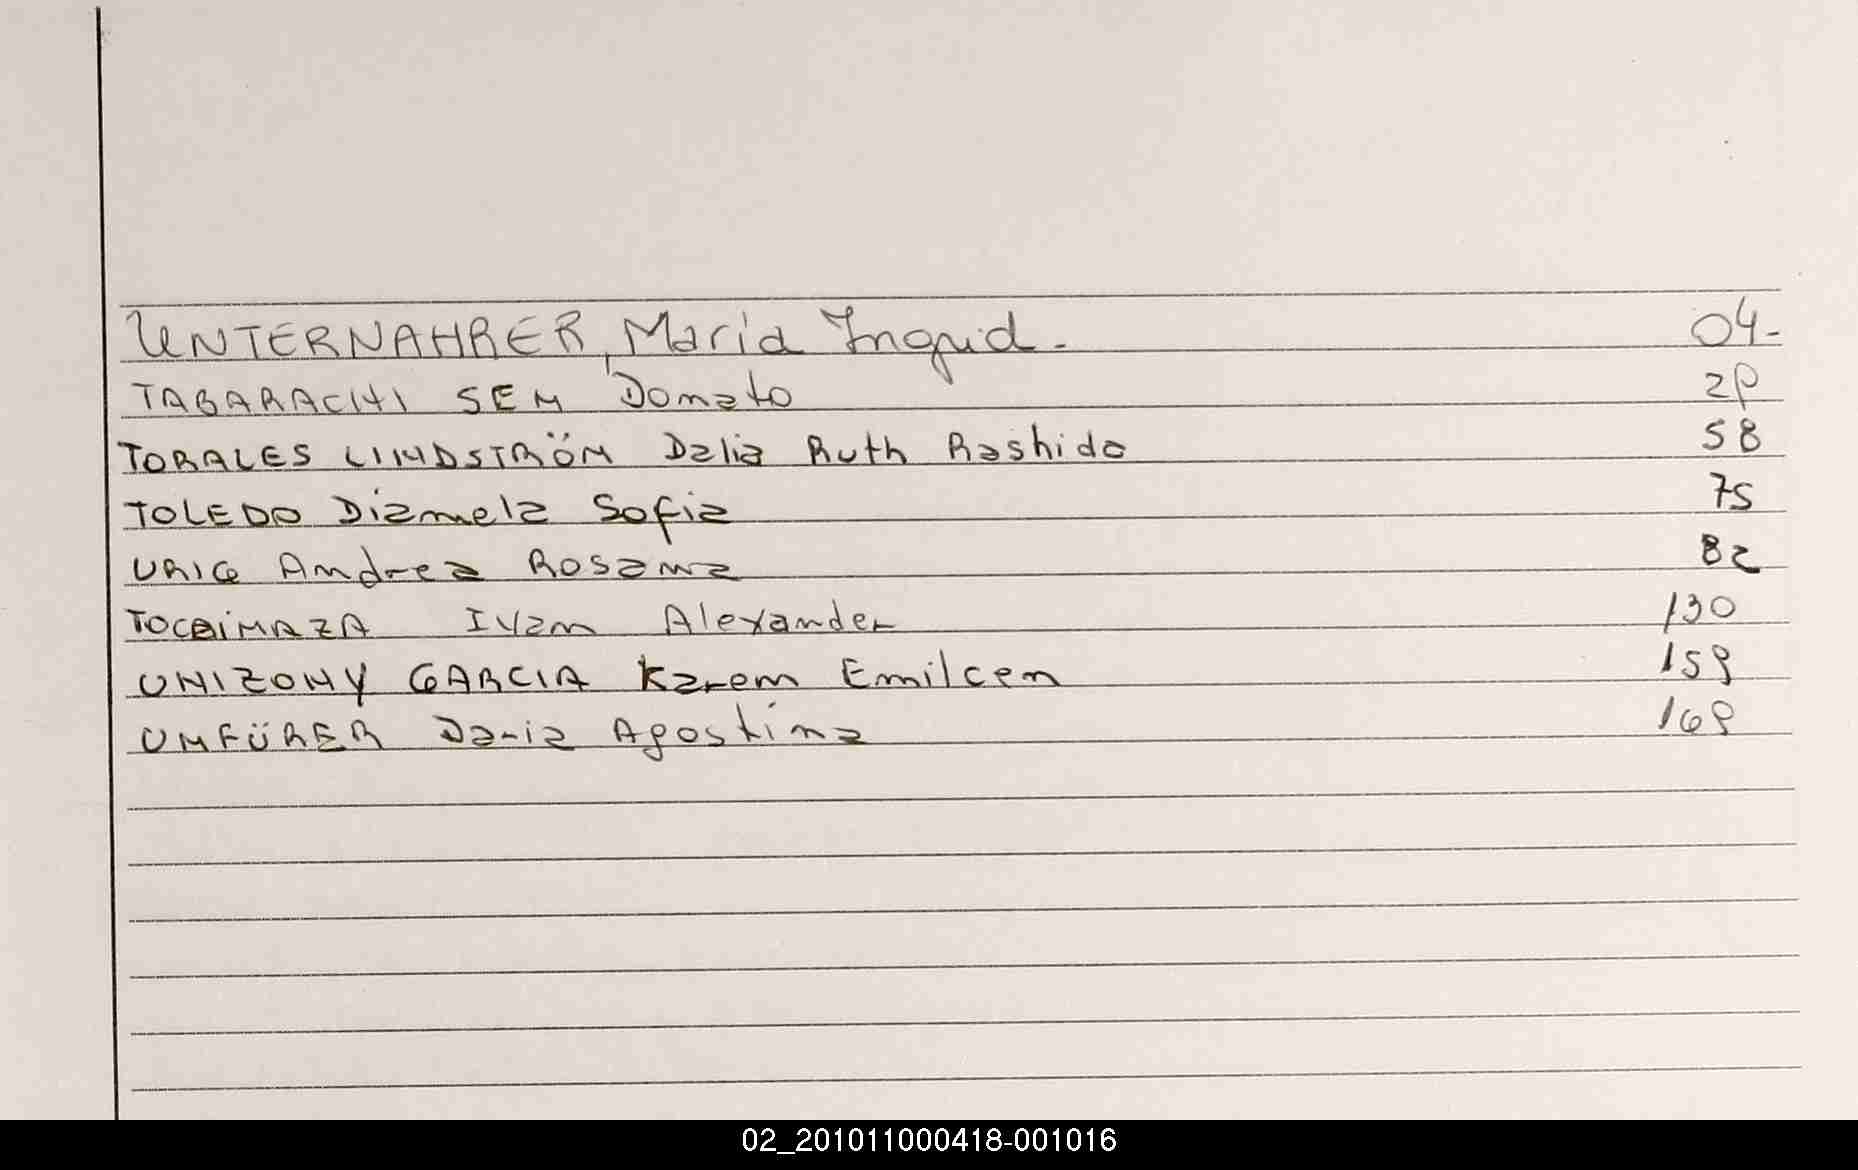 UNTERNAHRER, María Ingrid.- 04-
TABARACHI SEN Donato 29
TORALES LINDSTRÖN Dalia Ruth Rashida 58
TOLEDO Diamela Sofia 75
URIG Andrea Rosana 82
TOCAIMAZA Ivan Alexander 130
UNIZONY GARCIA Karen Emilcen 159
UNFÜRER Daria Agostina 169
02_201011000418-001016